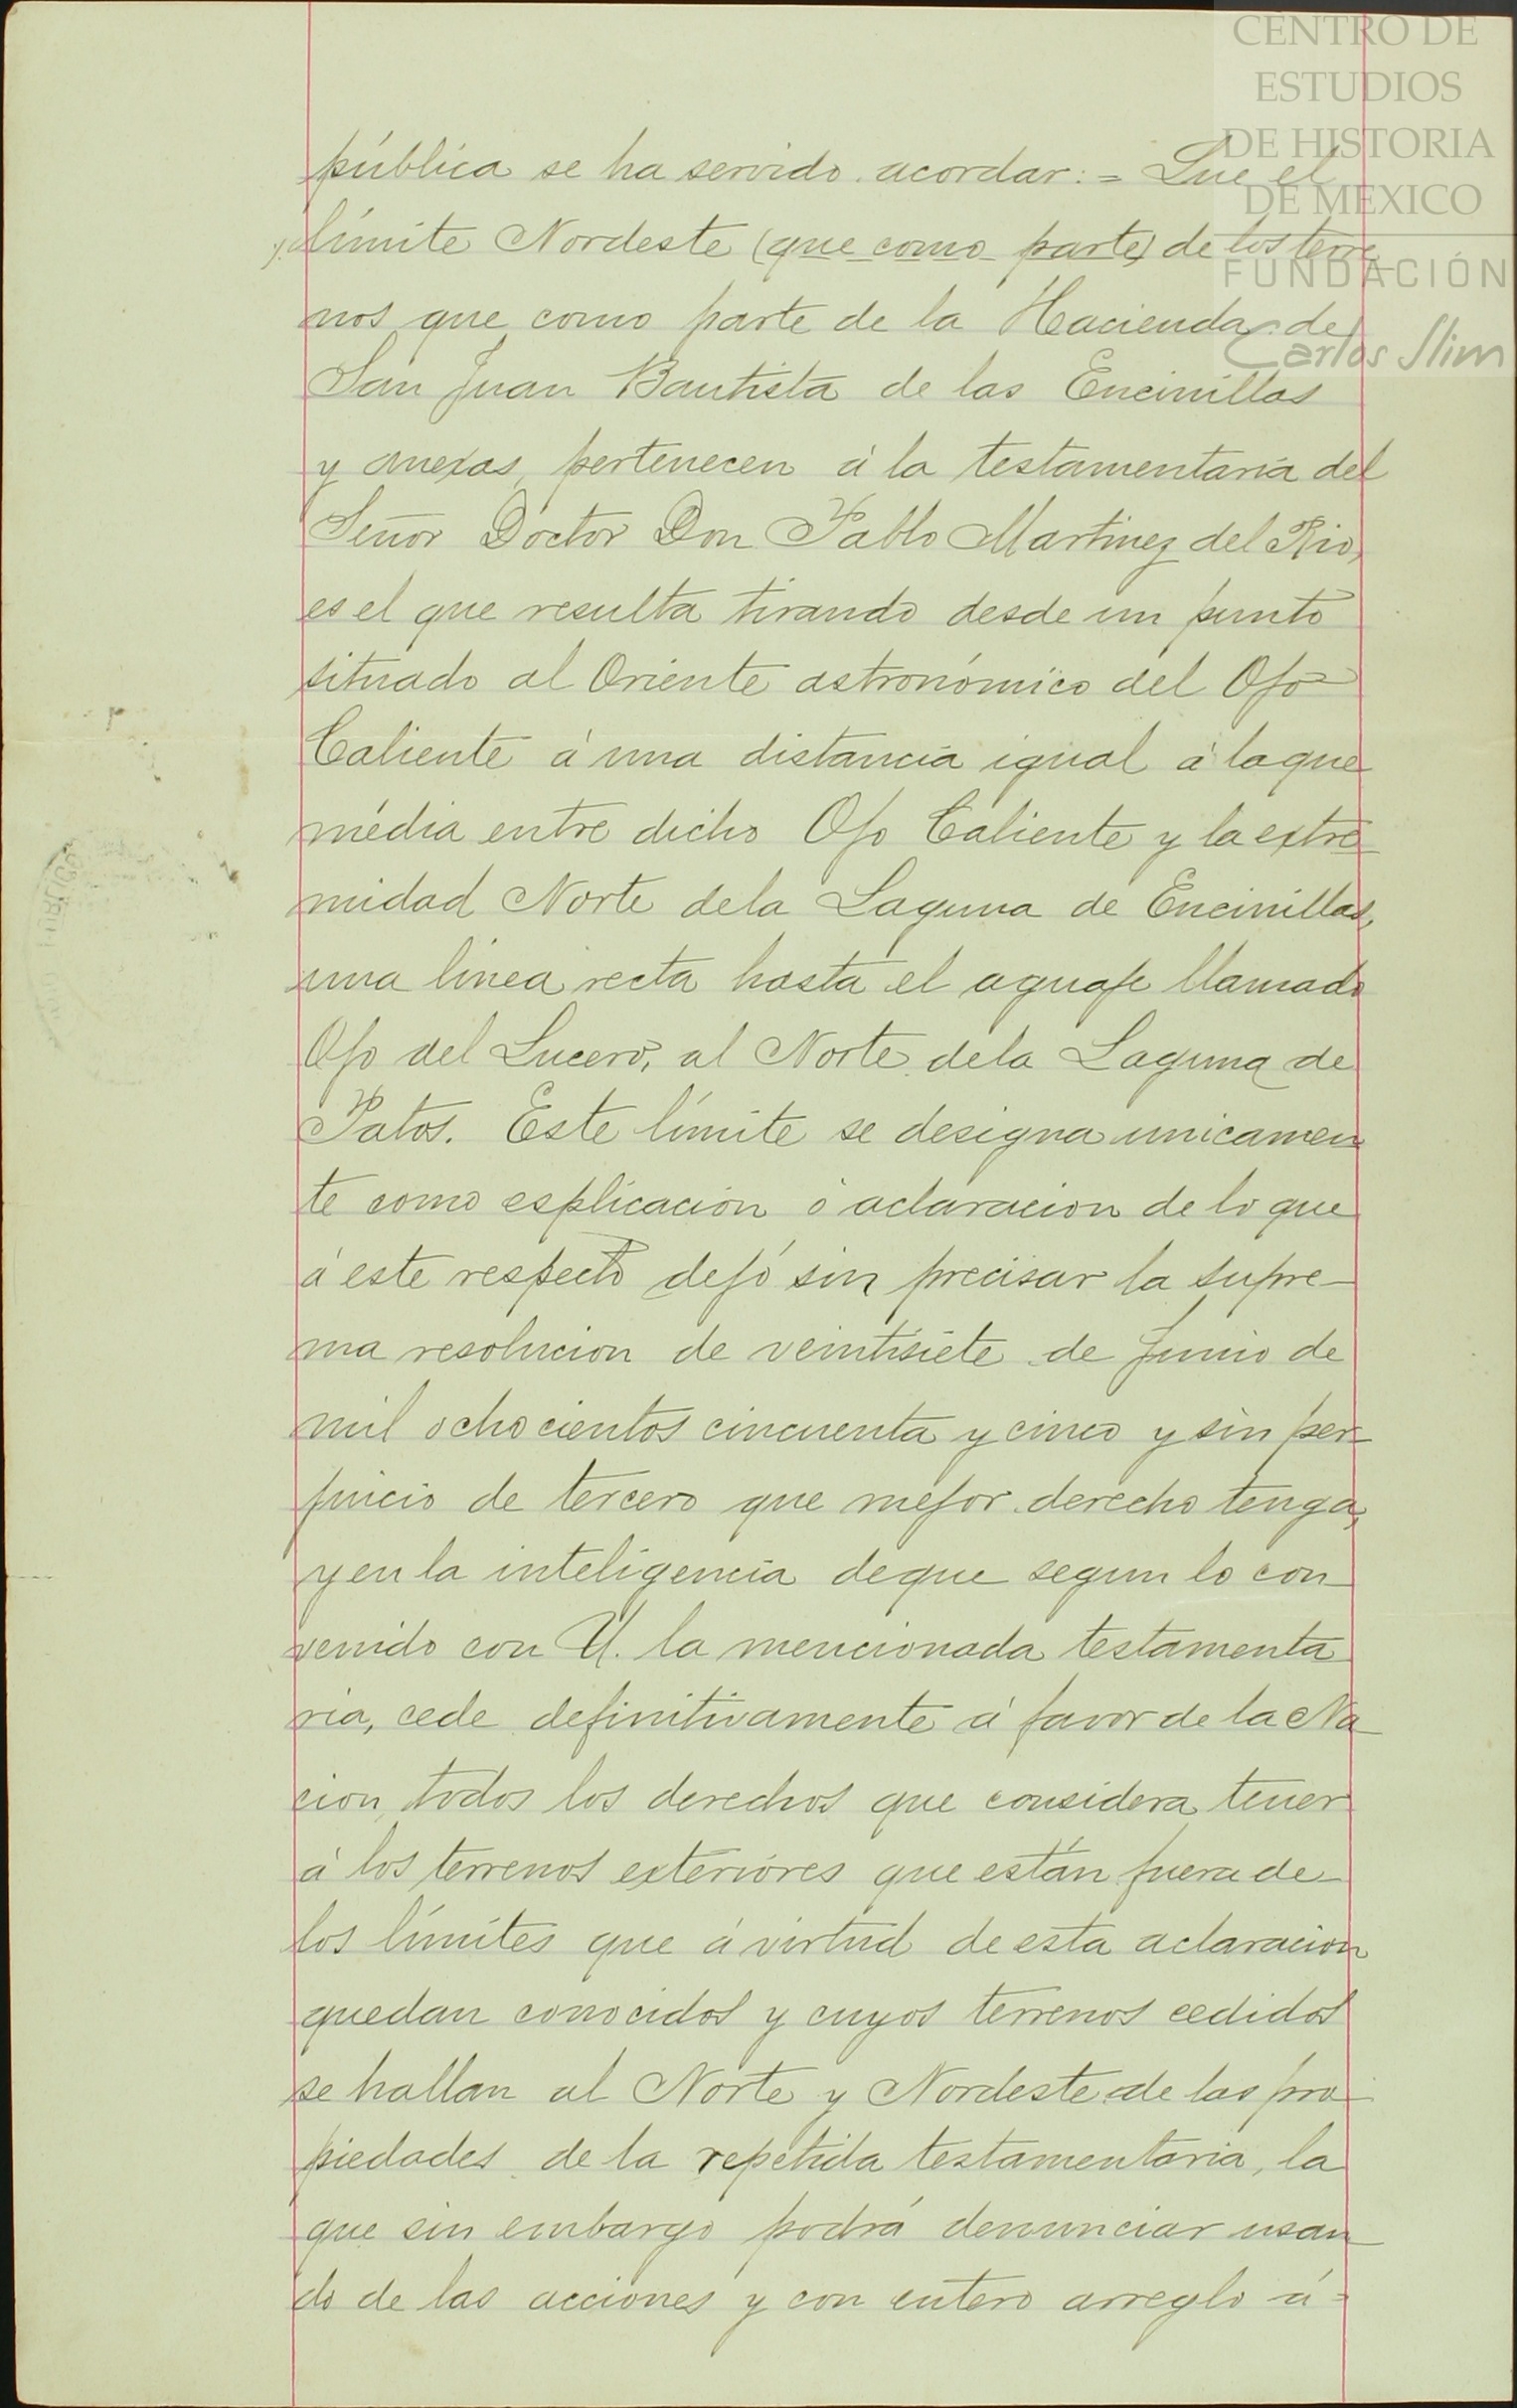 CENTRO DE
ESTUDIOS
DE HISTORIA
DE MEXICO
FUNDACIÓN
Carlos Slim
pública se ha servido acordar: = Que el
límite Nordeste (que como parte) de los terre
nos que como parte de la Hacienda de
San Juan Bautista de las Encinillas
y anexas, pertenecen á la testamentaría del
Señor Doctor Don Pablo Martinez del Rio,
es el que resulta tirando desde un punto
situado al Oriente astronómico del Ojo
Caliente á una distancia igual á la que
média entre dicho Ojo Caliente y la extre
midad Norte dela Laguna de Encinillas,
una línea recta hasta el aguaje llamado
Ojo del Lucero, al Norte dela Laguna de
Patos. Este límite se designa unicamen
te como esplicación ó aclaracion de lo que
á este respecto dejó sin precisar la supre-
ma resolucion de veintisiete de Junio de
mil ochocientos cincuenta y cinco y sin per-
juicio de tercero que mejor derecho tenga,
y en la inteligencia de que segun lo con
venido con U. la mencionada testamenta
ria, cede definitivamente á favor de la Na
cion, todos los derechos que considera tener
á los terrenos exteriores que están fuera de
los límites que á virtud de esta aclaracion
quedan conocidos y cuyos terrenos cedidos
se hallan al Norte y Nordeste de las pro
piedades de la repetida testamentaria, la
que sin embargo podrá denunciar usan
do de las acciones y con entero arreglo á